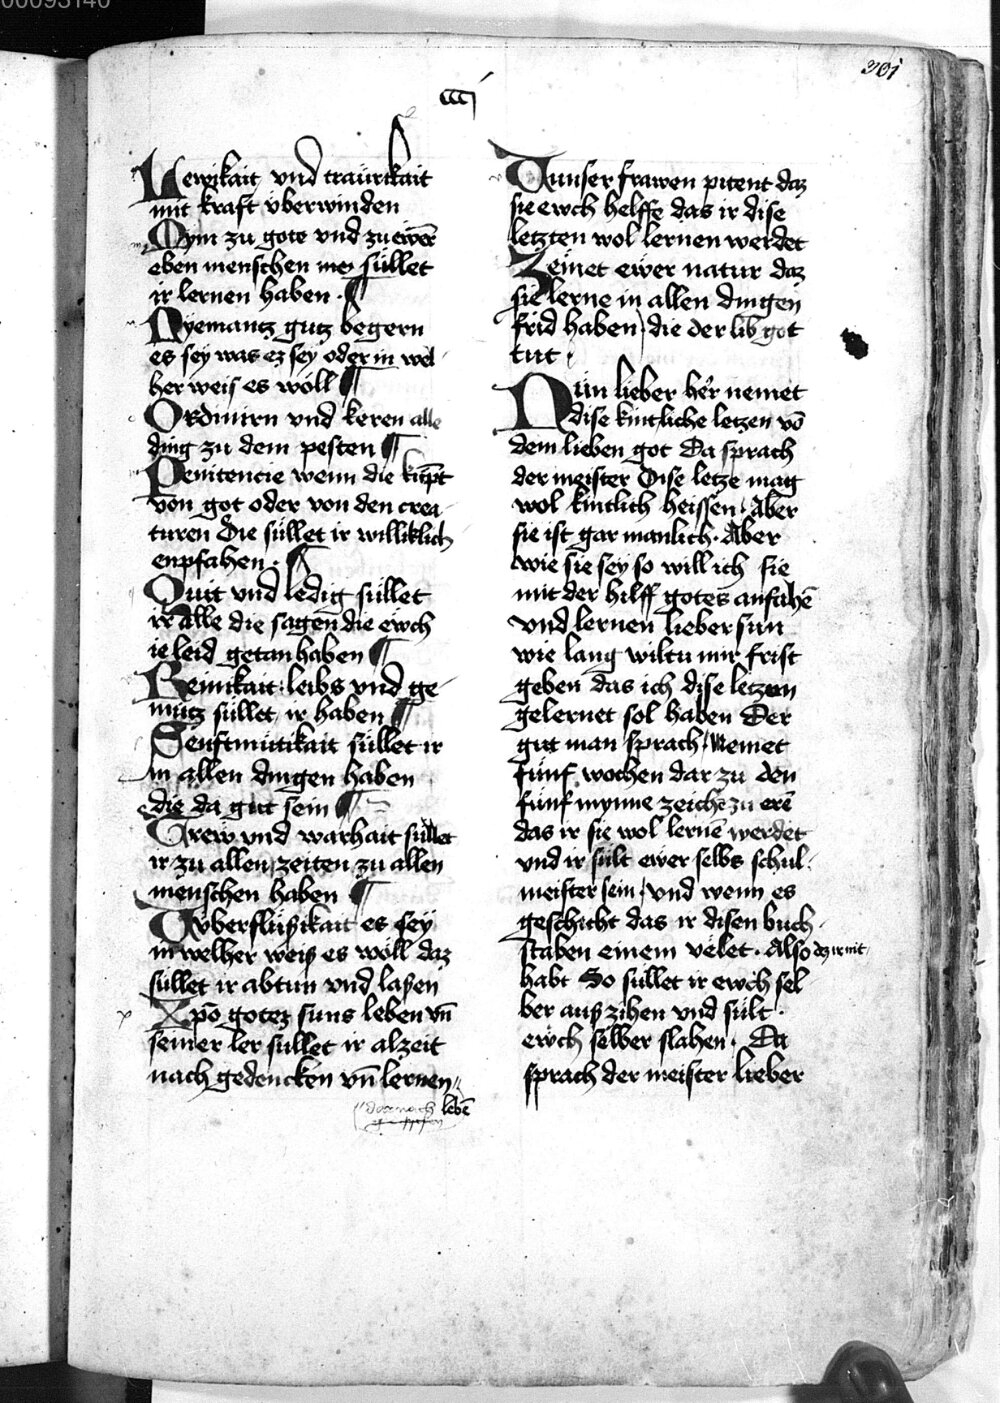 00093140
301
ccci
Lewikait vnd traürikait
mit kraft vberwinden
Mynn zu gote vnd zu ewer
eben menschen süllet
ir lernen haben ·
Nyemantz gutz begern
es sey was ez sey oder in wel
her weis es wöll
Ordinirn vnd keren alle
ding zu dem pesten
Penitencie wenn die kūpt
von got oder von den crea
turen Die süllet ir williklich
enpfahen ·
Quit vnd ledig süllet
ir Alle die sagen die ewch
ie leid getan haben
Reinikait leibs vnd ge
mütz süllet ir haben
Senftmütikait süllet ir
in allen dingen haben
die da gut sein
Trew vnd warhait süllet
ir zu allen zeiten zu allen
menschen haben
Vberflüßikait es sey
in welher weis es wöll daz
süllet ir abtun vnd laßen
Xp̄o gotez suns leben vn̄
seiner ler süllet ir alzeit
nach gedencken vn̄ lernen
darnach lebē
unser frawen pitent daz
sie ewch helffe das ir dise
letzten wol lernen werdet
Zeinet ewer natur daz
sie lerne in allen dingen
frid haben die der lib got
tut
Nün lieber her nemet
dise kintliche letzen vō
dem lieben got Da sprach
der meister Dise letze mag
wol kintlich heissen · Aber
sie ist gar manlich · Aber
wie sie sey so will ich sie
mit der hilff gotes anfahē
vnd lernen lieber sun
wie lang wiltu mir frist
geben das ich dise letzen
gelernet sol haben Der
gut man sprach Nemet
fünf wochen dar zu den
fünf mynne zeichē zu erē
das ir sie wol lernē werdet
vnd ir sült ewer selbs schul
meister sein vnd wenn es
geschicht das ir disen buch
staben einem velet · Also dz ir nit
habt So süllet ir ewch sel
ber auß zihen vnd sült
ewch selber slahen · Da
sprach der meister lieber